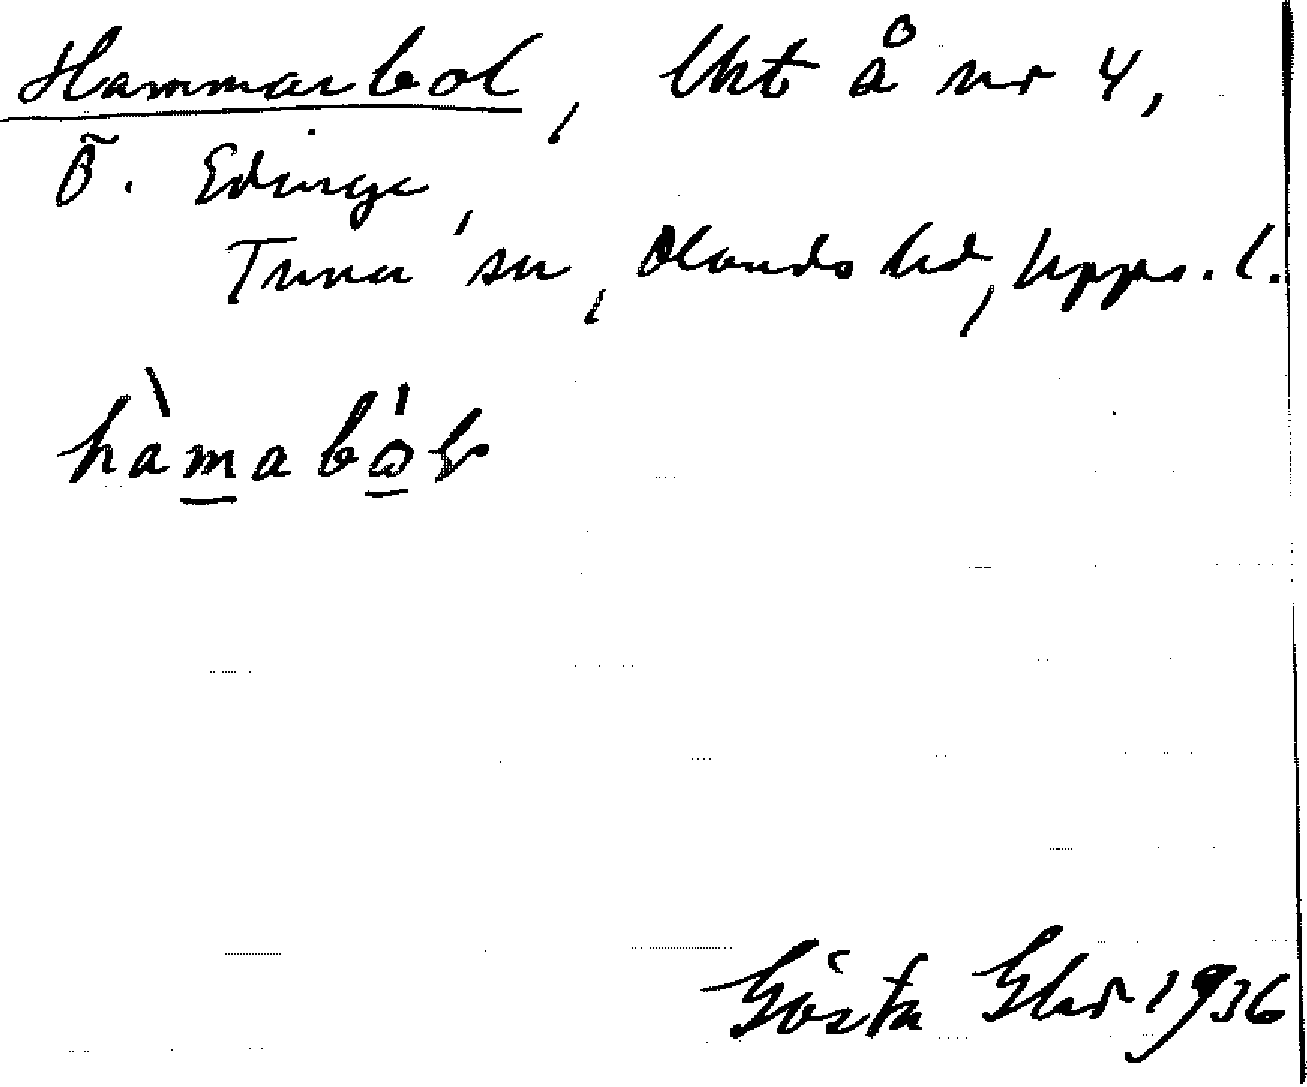 Hammarbol, lht å nr 4,
Ö. Edinge,
Tuna sn, Olands hd, Upps. l.
hàmabó̱l
Gösta 1936